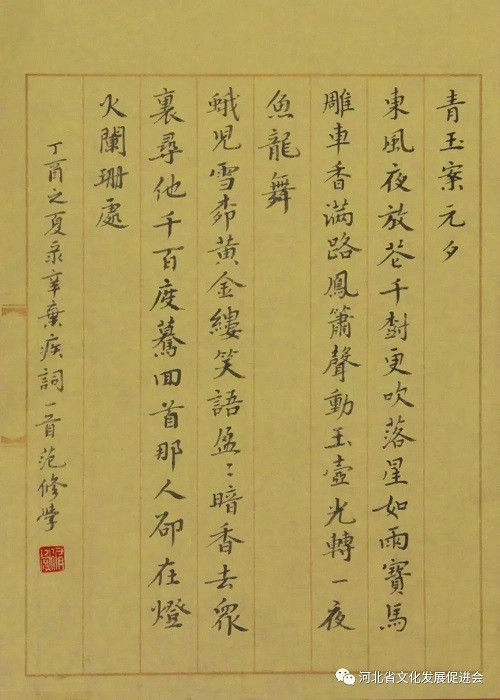 青玉案元夕
東風夜放花千樹更吹落星如雨寶馬
雕車香满路鳳簫聲動玉壺光轉一夜
魚龍舞
蛾児雪柳黄金縷笑語盈〻暗香去眾
裏尋他千百度驀回首那人卻在燈
火闌珊處
丁酉之夏录辛棄疾詞一首范修學
河北省文化发展促进会